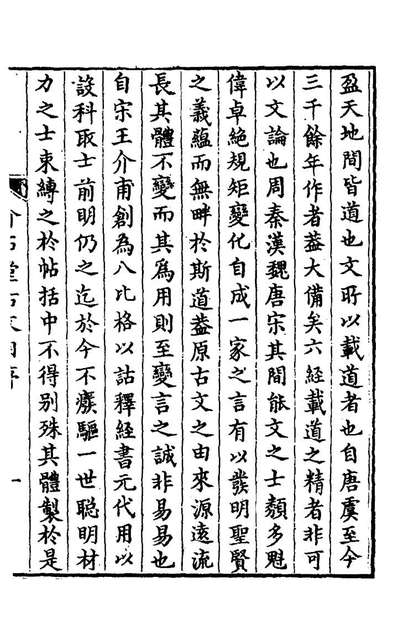 盈天地間皆道也文所以載道者也自唐虞至今
三千餘年作者蓋大備矣六經載道之精者非可
以文論也周秦漢魏唐宋其間能文之士類多魁
偉卓絕規矩變化自成一家之言有以發明聖賢
之義蘊而無畔於斯道蓋原古文之由來源遠流
長其體不變而其為用則至變言之誠非易易也
自宋王介甫創為八比格以詁釋經書元代用以
設科取士前明仍之迄於今不廢驅一世聰明材
力之士束縛之於帖括中不得別殊其體製於是
堂古文
序
一